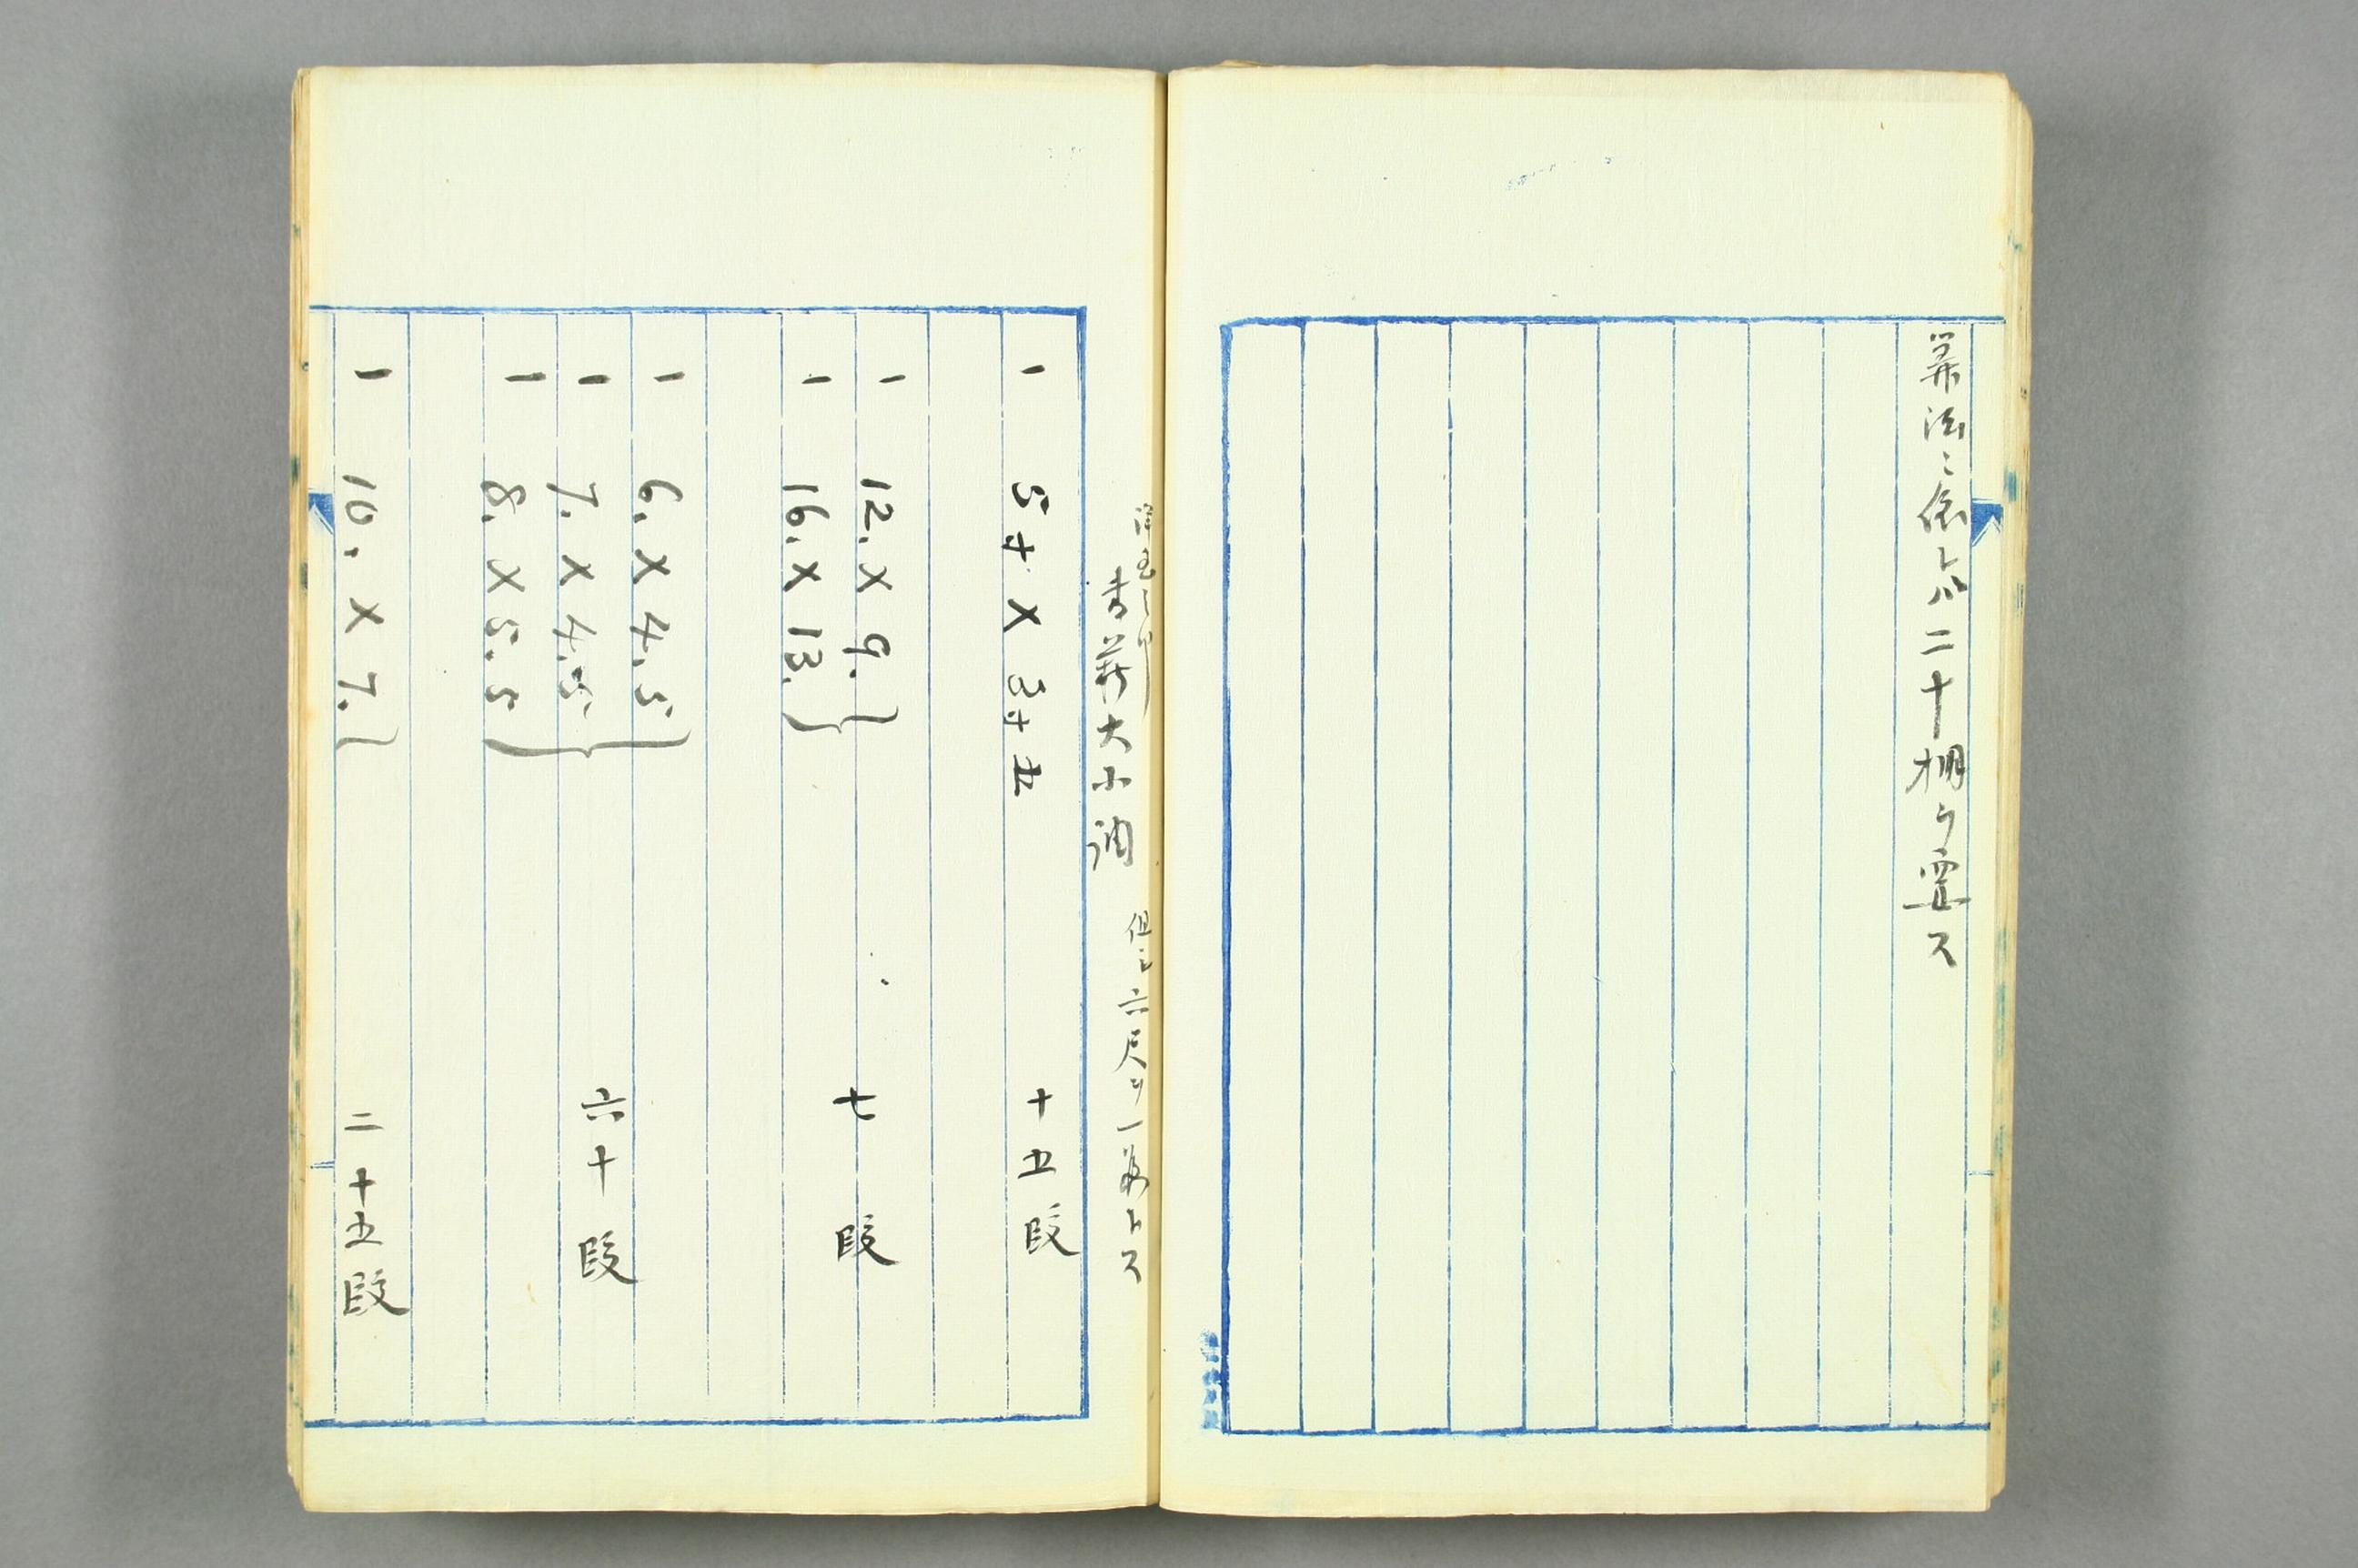 算法ニ依レバ二十棚ヲ要ス
書籍大小調
但シ六尺ヲ一段トス
一 5寸×3寸五 十五段
一 12.×9.
一 16.×13. 七段
一 6.×4.5
一 7.×4.5 六十段
一 8.×5.5
一 10.×7. 二十五段